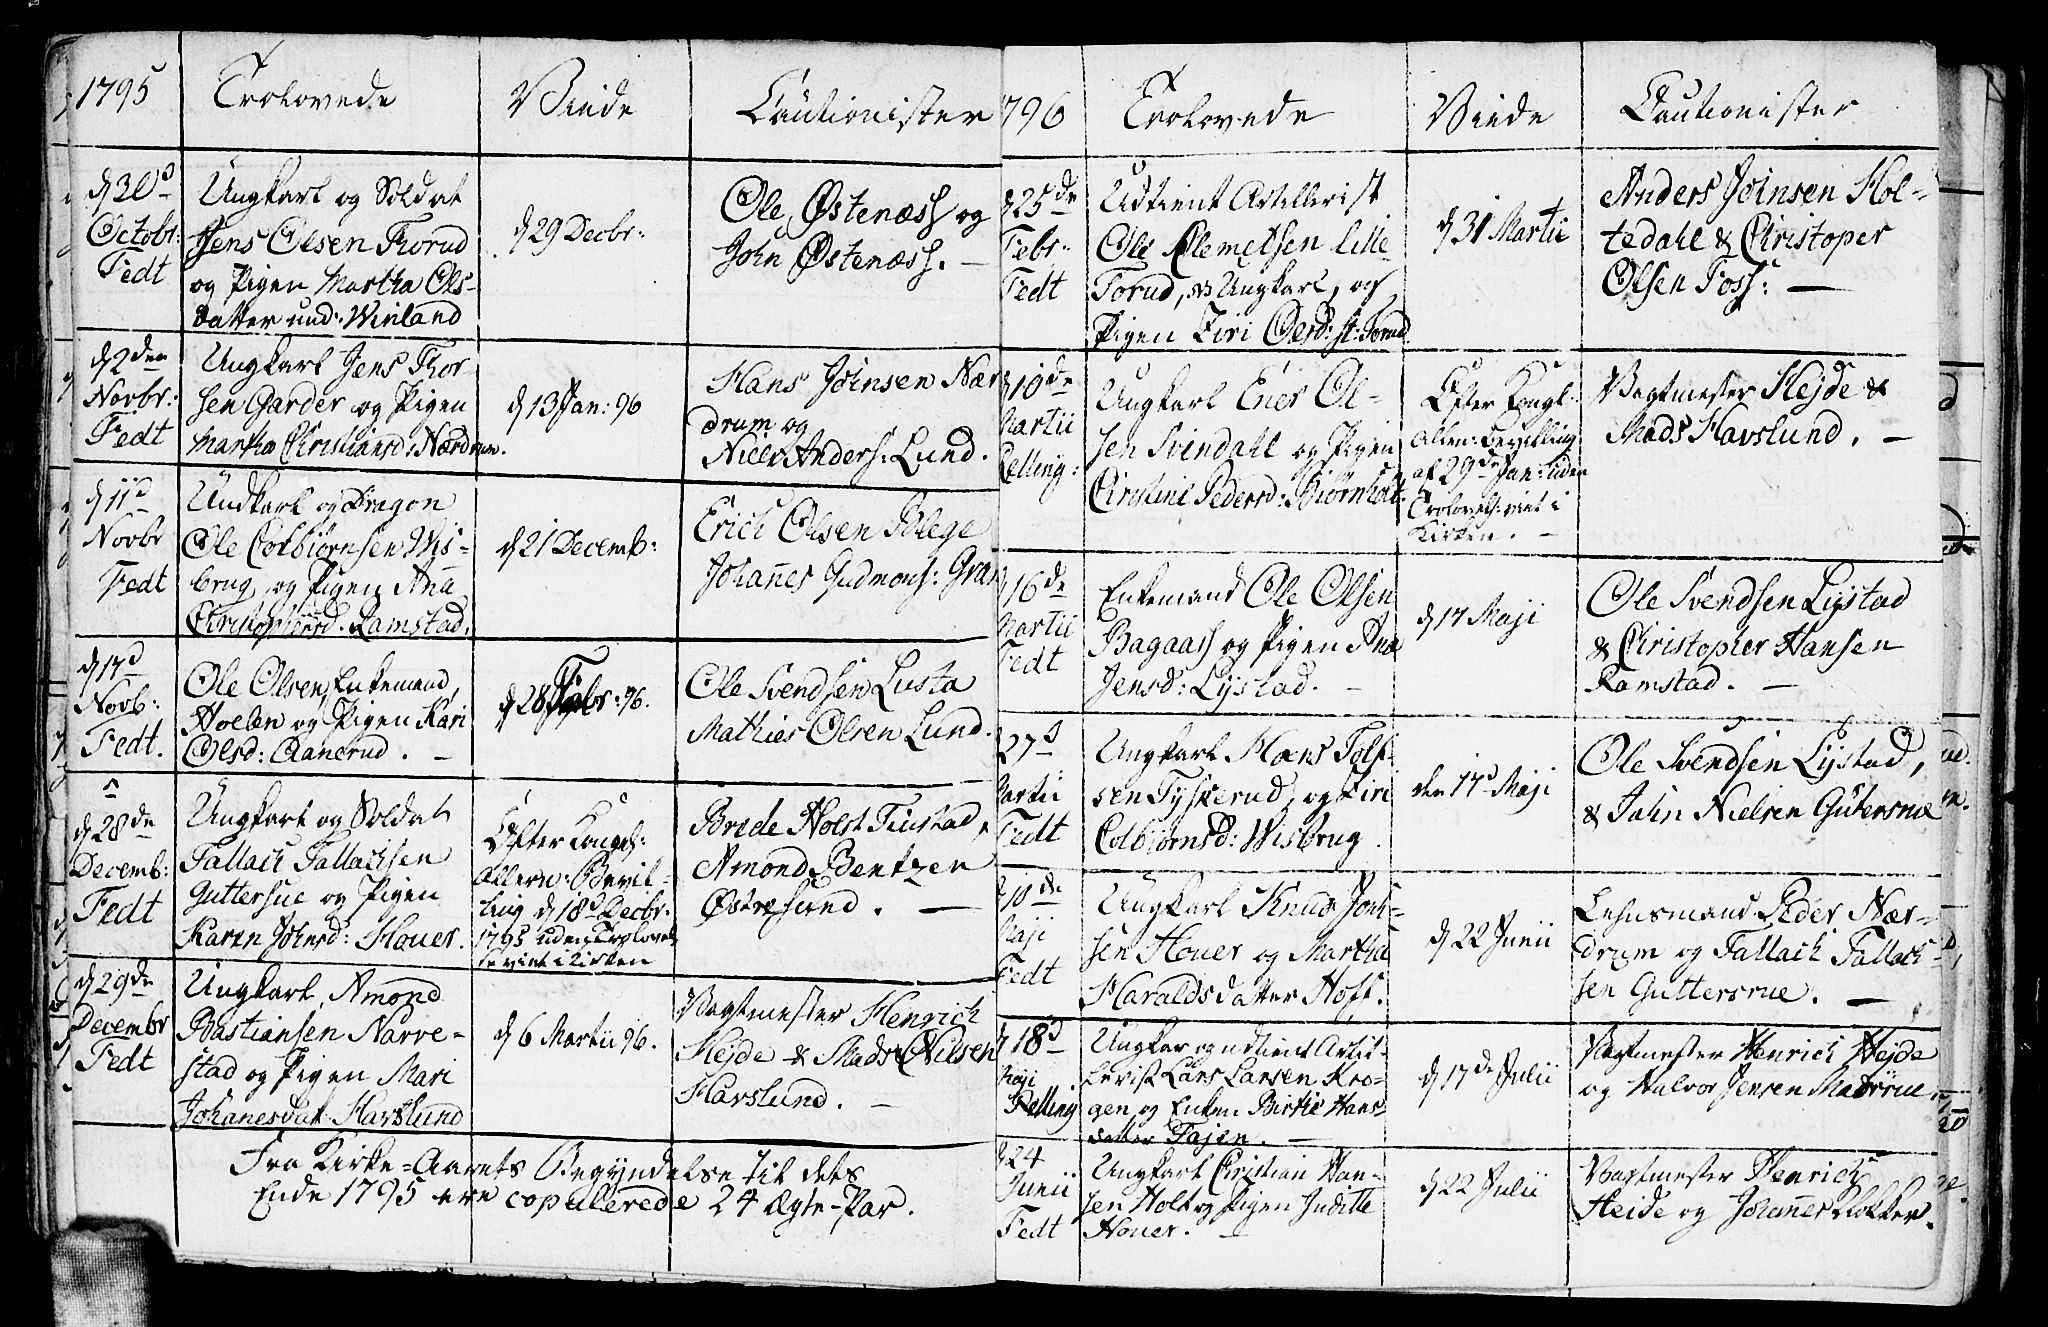 1795
Trolovede
Viede
Cautionister
d 30d
Octobr:
Fedt
Ungkarl og Soldat
Jens Olsen Thorud
og Pigen Martha Ols-
datter und: Winland
d 29 Decbr:
Ole Østenæss og
John Østenæss. —
d 2den
Novbr:
Fedt
Ungkarl Jens Thor-
sen Garder og Pigen
Martha Christiansd: Nærdrum.
d 13 Jan: 96
Hans Johnsen Nær
drum og
Niels Anders: Lund.
d 11d
Novbr
Fedt
Undkarl og Dragon
Ole Colbiørnsen Wis-
brug og Pigen Ana
Christophersd. Ramstad.
d 21 Decemb:
Erich Olsen Blege
Johannes Gudmons: Gran
d 17d
Novb:
Fedt.
Ole Olsen, Enkemand,
Hoelen og Pigen Kari
Olsd: Aanerud. —
d 28 Febr: 96.
Ole Svendsen Lusta
Mathies Olsen Lund.
d 28de
Decemb:
Fedt
Ungkarl og Soldat
Tallach Tallachsen
Guttersrue og Pigen
Karen Johnsd: Houer.
Efter Kongel:
Allern: Bevil-
ling d 18d Decbr.
1795 uden Trolovel:
se viet i Kirken
Brede Holst Tiustad,
Amond Bentzen
Østresund. —
d 29de
Decembr
Fedt
Ungkarl Amond
Bastiansen Narve-
stad og Pigen Mari
Johanesdat: Harslund
d 6 Martii 96.
Vagtmester Henrich
Hejde & Mads Nilsen
Harslund. —
Fra Kirke-Aarets Begyndelse til dets
Ende 1795 ere copulerede 24 Ægte-Par.
796
Trolovede
Viede
Cautionister
d 25de
Febr:
Fedt
Udtient Artillerist
Ole Clemetsen Lille
Torud, Ungkarl, og
Pigen Siri Olsd: st: Torud.
d 31 Martii
Anders Johnsen Hol-
tedahl & Christopher
Olsen Foss: —
d 10de
Martii
Relling:
Ungkarl Ener Ol-
sen Svendahl og Pigen
Christine Pedersd: Biørnholt.
Efter Kongl:
Allern: Bevilling
af 29de Jan: uden
Trolovels: viet i
Kirken. —
Vagtmester Hejde &
Mads Harslund. —
16de
Martii
Fedt
Enkemand Ole Olsen
Bagaass og Pigen Anæ
Jensd: Lystad. —
d 17 Maji
Ole Svendsen Lystad
& Christopher Hansen
Ramstad. —
27d
Martii
Fedt
Ungkarl Hans Tolf-
sen Tyskerud og Siri
Colbiørnsd: Wisbrug.
den 17d Maji
Ole Svendsen Lystad,
& John Nielsen Gutersrue
d 10de
Maji
Fedt
Ungkarl Knud John-
sen Houer og Martha
Haraldsdatter Hoff.
d 22 Junii
Lehnsmand Peder Nær-
drum og Tallach Tallach-
sen Guttersrue. —
d 18d
Maji
Relling
Ungkar og udtient Artil-
lerist Lars Larsen Kro-
gen og Enken Birthe Hans-
datter Tajen. —
d 17de Julii
Vagtmester Henrich Hejde
og Halvor Jensen Madsrue.
d 24
Junii
Fedt
Ungkarl Christian Han-
sen Holt og Pigen Judithe
Houer. —
d 22 Julii
Vagtmester Henrich
Heide og Johannes Klokker.